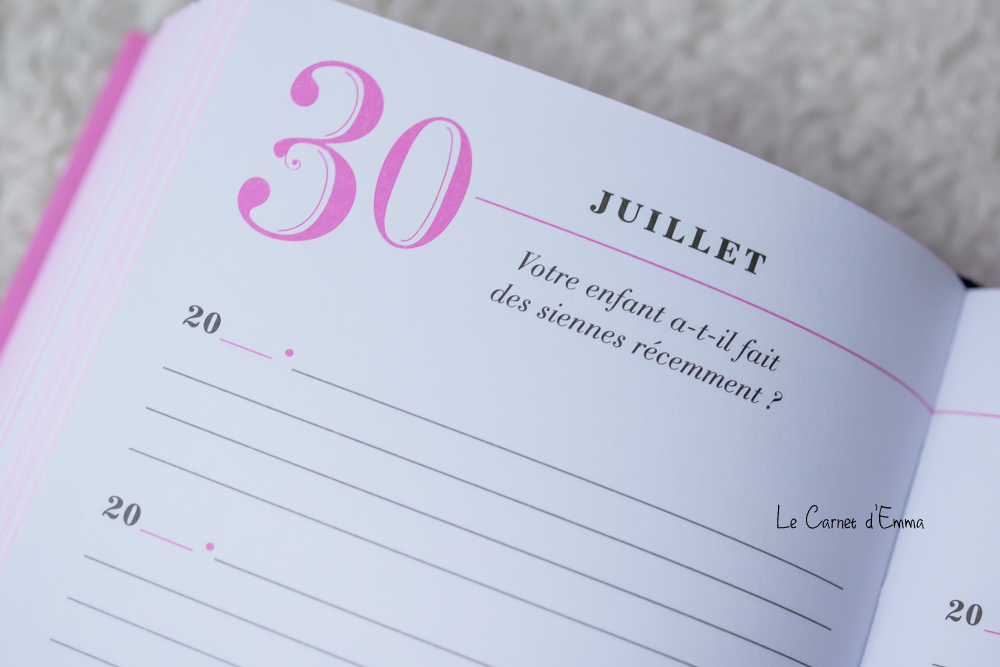 30
JUILLET
Votre enfant a-t-il fait
des siennes récemment ?
20
20
Le Carnet d'Emma
20